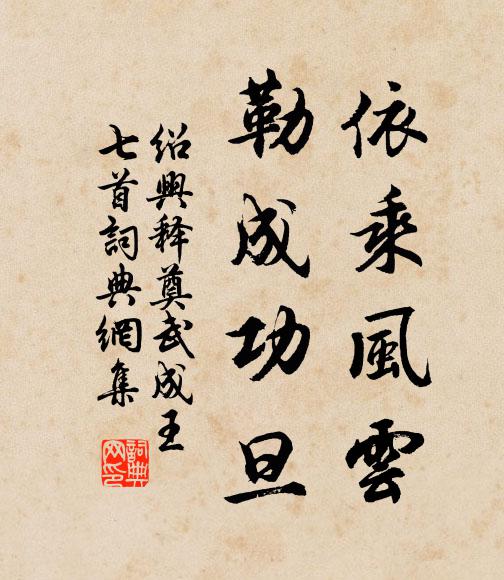 依乘風雲
勒成功旦
绍興释奠武成王
七首詞典網集
詞典网印